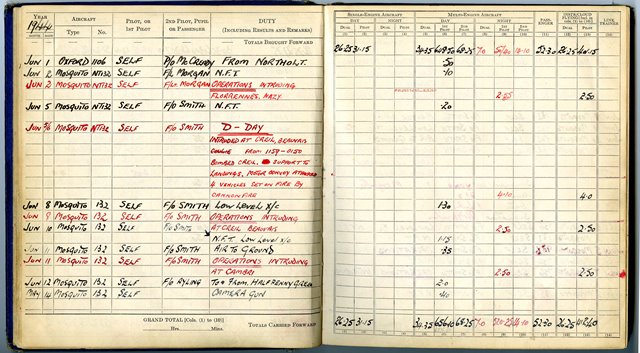 YEAR 1944 AIRCRAFT PILOT, OR 2ND PILOT, PUPIL DUTY
MONTH DATE Type No. 1ST PILOT OR PASSENGER (INCLUDING RESULTS AND REMARKS)
TOTALS BROUGHT FORWARD
JUN 1 OXFORD 1106 SELF FROM NORTHOLT.
JUN 2 MOSQUITO NT132 SELF MORGAN N.F.T
JUN 2 MOSQUITO NT132 SELF MORGAN OPERATIONS INTRUDING
FLORENNES. HAZY
JUN 5 MOSQUITO NT132 SELF F/O SMITH N.F.T.
JUN 5/6 MOSQUITO NT132 SELF F/O SMITH D-DAY
INTRUDED AT CREIL, BEAUVAIS
FROM 1159-0150
BOMBED CREIL. SUPPORT TO
LANDINGS. MOTOR CONVOY ATTACKED
4 VEHICLES SET ON FIRE BY
CANNON FIRE
JUN 8 MOSQUITO 132 SELF F/O SMITH LOW LEVEL X/C
JUN 9 MOSQUITO 132 SELF F/O SMITH OPERATIONS INTRUDING
JUN 10 MOSQUITO 132 SELF F/O SMITH AT CREIL BEAUVAIS
N.F.T. LOW LEVEL X/C
JUN 11 MOSQUITO 132 SELF F/O SMITH AIR TO GROUND
JUN 11 MOSQUITO 132 SELF F/O SMITH OPERATIONS INTRUDING
AT CAMBRAI
JUN 12 MOSQUITO 132 SELF RYLING TO + FROM. HALFPENNY GREEN
MAY 14 MOSQUITO 132 SELF CAMERA GUN
GRAND TOTAL [Cols. (1) to (10)]
Hrs. Mins. TOTALS CARRIED FORWARD
SINGLE-ENGINE AIRCRAFT MULTI-ENGINE AIRCRAFT PASSENGER INSTR/CLOUD FLYING LINK TRAINER
DAY NIGHT DAY NIGHT
DUAL PILOT DUAL PILOT DUAL 1ST PILOT 2ND PILOT DUAL 1ST PILOT 2ND PILOT DUAL PILOT
(1) (2) (3) (4) (5) (6) (7) (8) (9) (10) (11) (12) (13)
26·25 31·15 52·30 26·25
·50
·10
2·50
·20
4·10 4·0
1·30
2·50 2·50
1·15
·35
2·50 2·50
2·0
·40
26·25 31·15 52·30 26·25